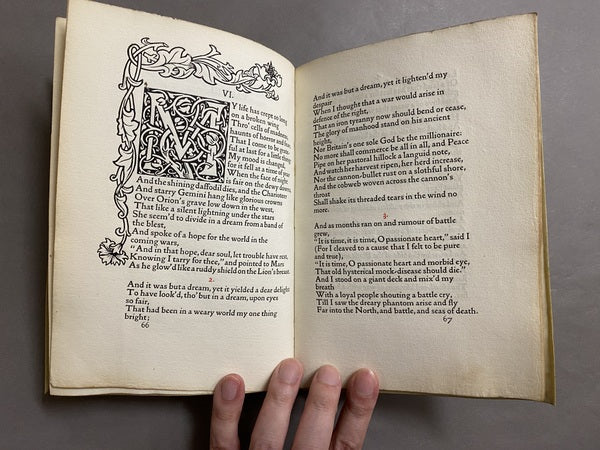 VI.
MY life has crept so long
on a broken wing
Thro' cells of madness,
haunts of horror and fear,
That I come to be grate-
ful at last for a little thing:
My mood is changed,
for it fell at a time of year
When the face of night
is fair on the dewy downs,
And the shining daffodil dies, and the Charioteer
And starry Gemini hang like glorious crowns
Over Orion's grave low down in the west,
That like a silent lightning under the stars
She seem'd to divide in a dream from a band of
the blest,
And spoke of a hope for the world in the
coming wars,
"And in that hope, dear soul, let trouble have rest,
Knowing I tarry for thee," and pointed to Mars
As he glow'd like a ruddy shield on the Lion's breast.
2.
And it was but a dream, yet it yielded a dear delight
To have look'd, tho' but in a dream, upon eyes
so fair,
That had been in a weary world my one thing
bright;
66
And it was but a dream, yet it lighten'd my
despair
When I thought that a war would arise in
defence of the right,
That an iron tyranny now should bend or cease,
The glory of manhood stand on his ancient
height,
Nor Britain's one sole God be the millionaire:
No more shall commerce be all in all, and Peace
Pipe on her pastoral hillock a languid note,
And watch her harvest ripen, her herd increase,
Nor the cannon-bullet rust on a slothful shore,
And the cobweb woven across the cannon's
throat
Shall shake its threaded tears in the wind no
more.
3.
And as months ran on and rumour of battle
grew,
"It is time, it is time, O passionate heart," said I
(For I cleaved to a cause that I felt to be pure
and true),
"It is time, O passionate heart and morbid eye,
That old hysterical mock-disease should die."
And I stood on a giant deck and mix'd my
breath
With a loyal people shouting a battle cry,
Till I saw the dreary phantom arise and fly
Far into the North, and battle, and seas of death.
67